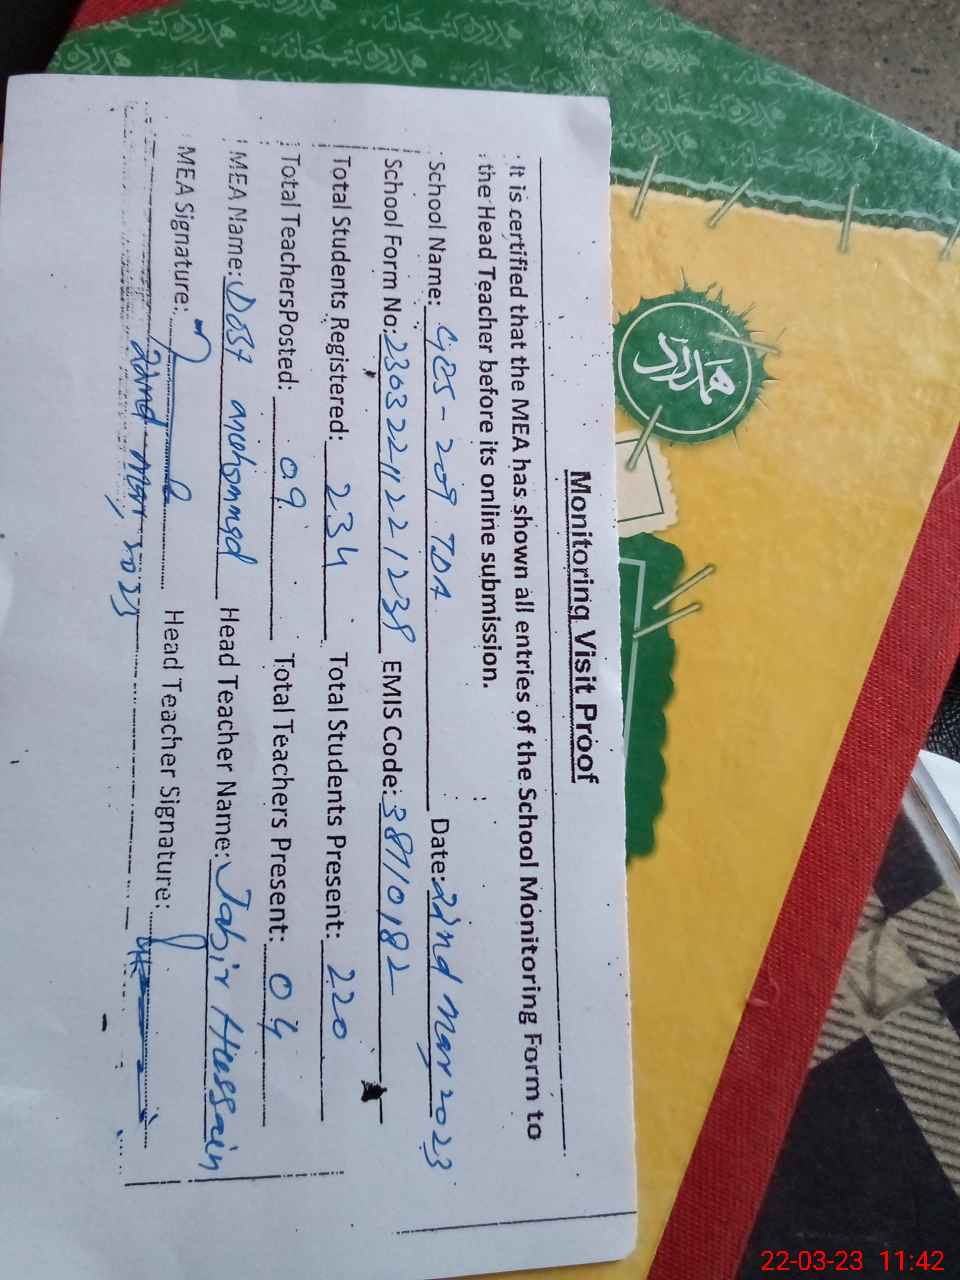 Monitoring Visit Proof
It is certified that the MEA has shown all entries of the School Monitoring Form to
the Head Teacher before its online submission.
School Name: GES - 209 TDA Date: 22nd Mar 2023
School Form No: EMIS Code: 38110182
Total Students Registered: 234 Total Students Present: 220
Total TeachersPosted: 09 Total Teachers Present: 04
MEA Name: Dost Mohammad Head Teacher Name: Jabir Hussain
MEA Signature: Head Teacher Signature:
22nd Mar, 2023
ہمدرد
22-03-23 11:42